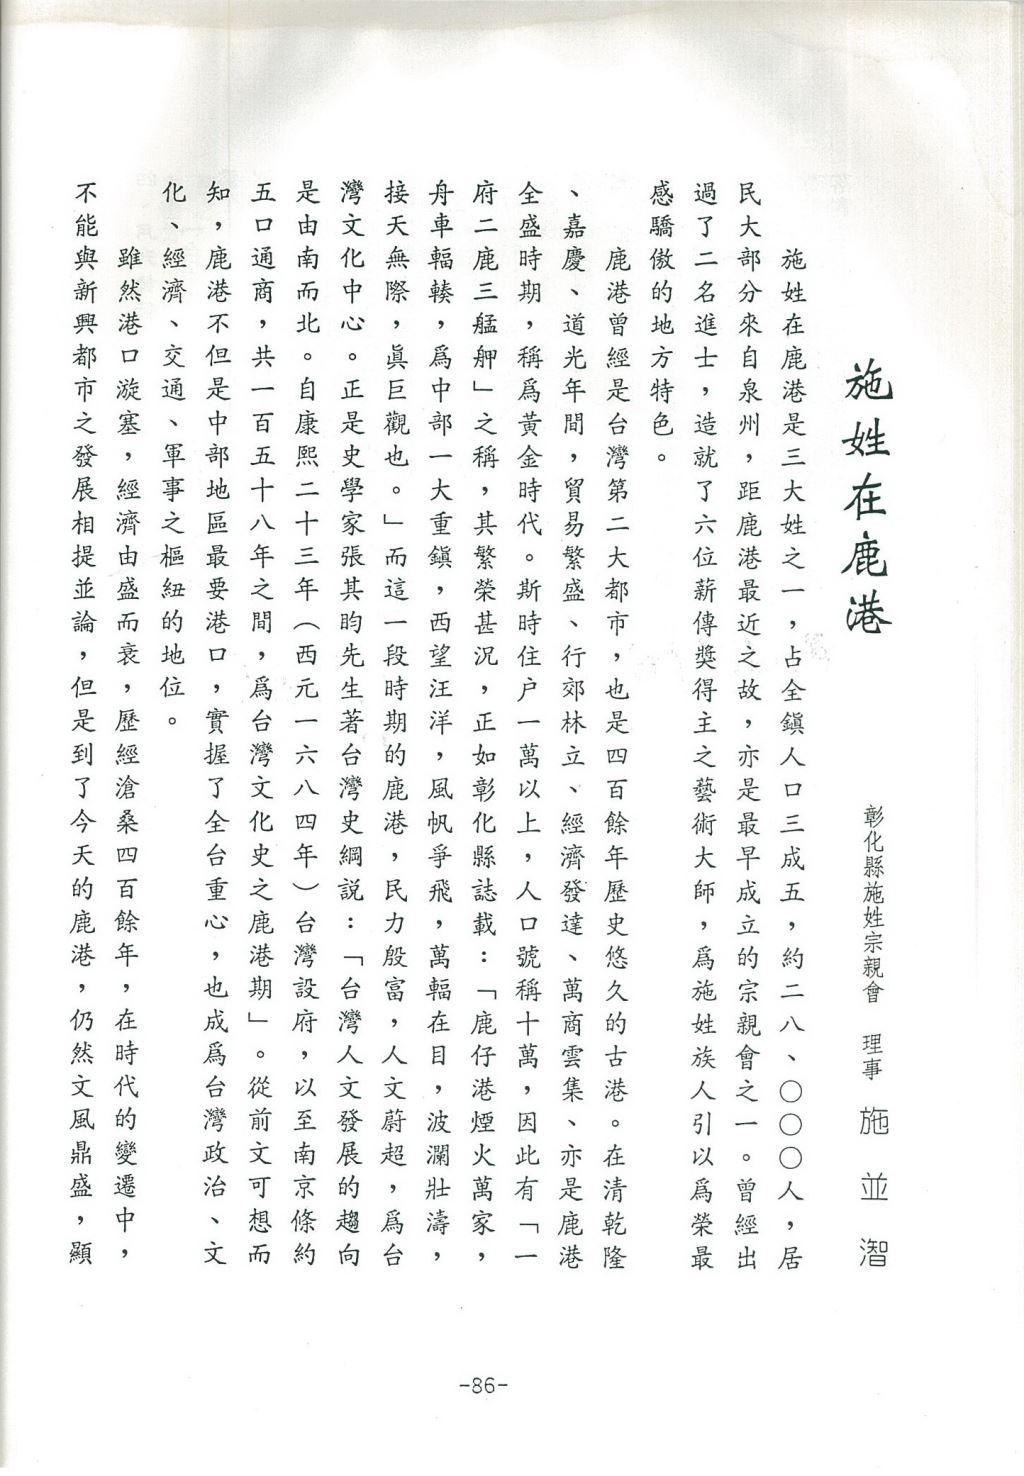 施姓在鹿港
彰化縣施姓宗親會　理事　施並潪
施姓在鹿港是三大姓之一，占全鎮人口三成五，約二八、〇〇〇人，居
民大部分來自泉州，距鹿港最近之故，亦是最早成立的宗親會之一。曾經出
過了二名進士，造就了六位薪傳獎得主之藝術大師，爲施姓族人引以爲榮最
感驕傲的地方特色。
鹿港曾經是台灣第二大都市，也是四百餘年歷史悠久的古港。在清乾隆
、嘉慶、道光年間，貿易繁盛、行郊林立、經濟發達、萬商雲集、亦是鹿港
全盛時期，稱爲黃金時代。斯時住户一萬以上，人口號稱十萬，因此有「一
府二鹿三艋舺」之稱，其繁榮甚況，正如彰化縣誌載：「鹿仔港煙火萬家，
舟車輻輳，爲中部一大重鎮，西望汪洋，風帆爭飛，萬輻在目，波瀾壯濤，
接天無際，眞巨觀也。」而這一段時期的鹿港，民力殷富，人文蔚超，爲台
灣文化中心。正是史學家張其昀先生著台灣史綱説：「台灣人文發展的趨向
是由南而北。自康熙二十三年（西元一六八四年）台灣設府，以至南京條約
五口通商，共一百五十八年之間，爲台灣文化史之鹿港期」。從前文可想而
知，鹿港不但是中部地區最要港口，實握了全台重心，也成爲台灣政治、文
化、經濟、交通、軍事之樞紐的地位。
雖然港口漩塞，經濟由盛而衰，歷經滄桑四百餘年，在時代的變遷中，
不能與新興都市之發展相提並論，但是到了今天的鹿港，仍然文風鼎盛，顯
-86-